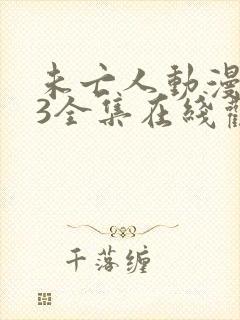 未亡人動漫
3全集在綫觀
千落缠